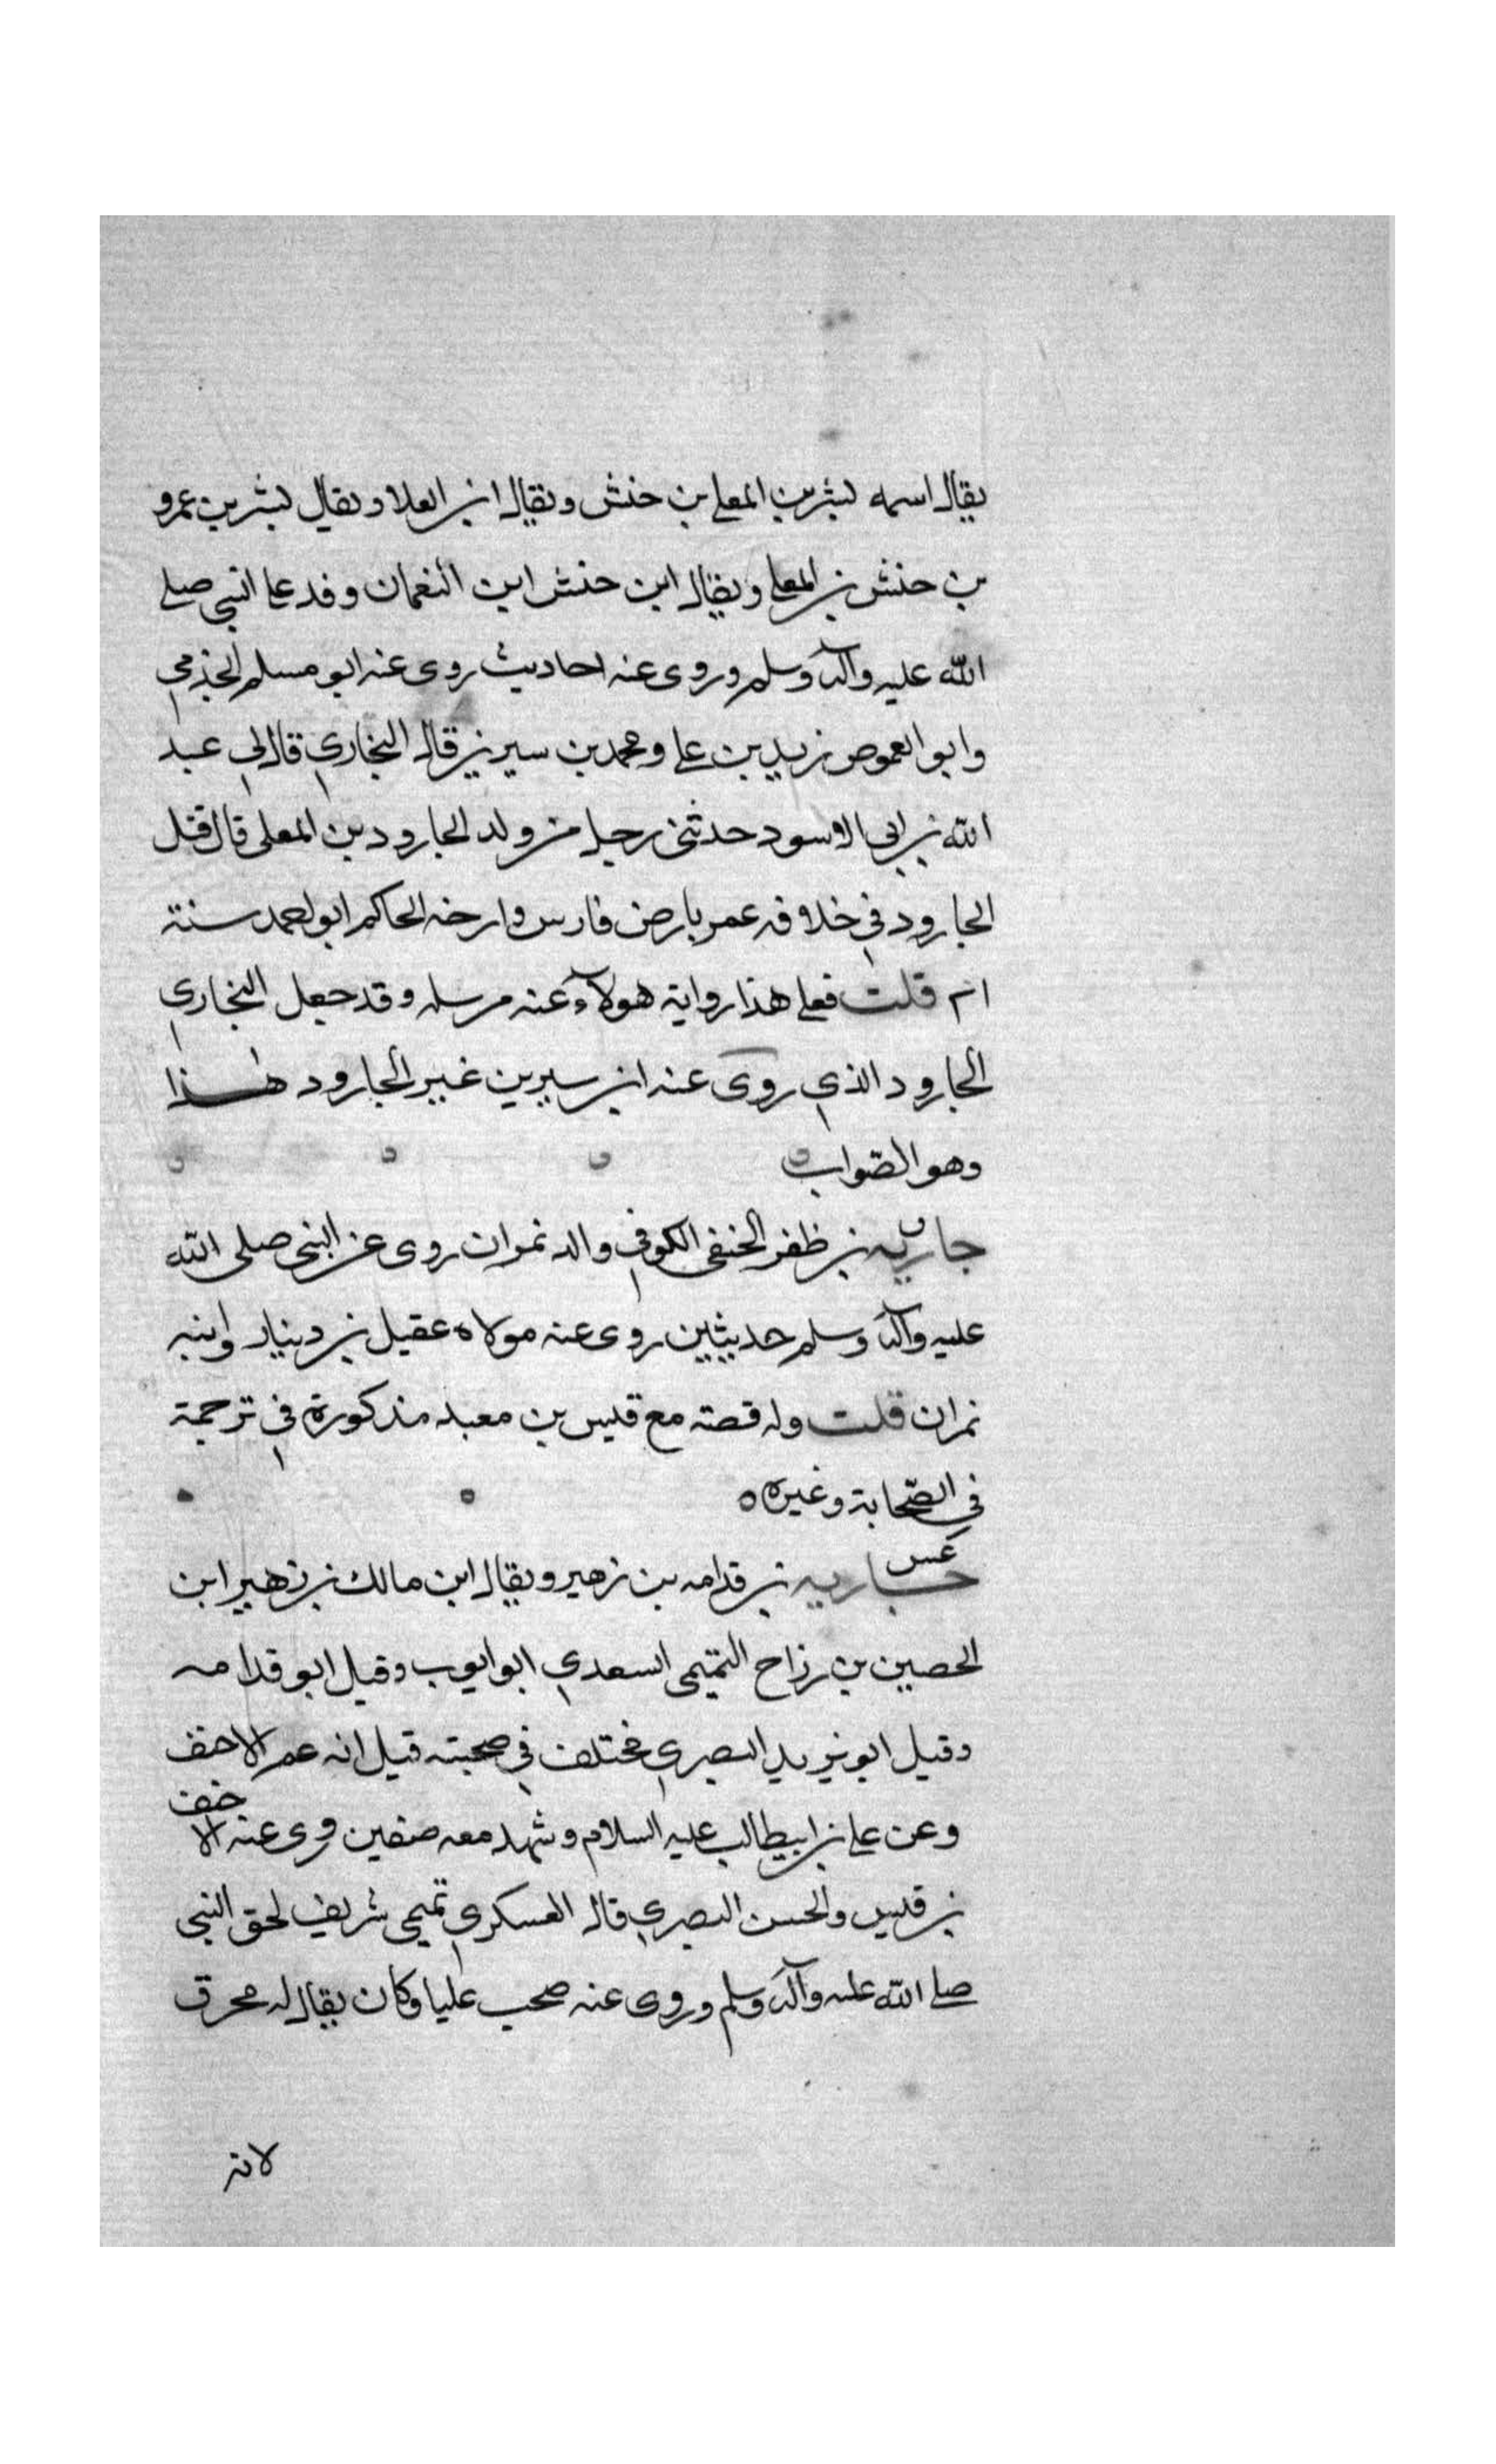 يقال اسمه بشر بن المعلى بن حنش ويقال ابن العلا ويقال بشر بن عمرو
بن حنش بن المعلى ويقال ابن حنش ابن النعمان وفد على النبي صلى
الله عليه وآله وسلم وروى عنه احاديث روى عنه ابو مسلم الجذمي
وابو العموص زيد بن على ومحمد بن سيرين قال البخاري قال لي عبد
الله بن ابي الاسود حدثني رجل من ولد الجارود بن المعلى قال قتل
الجارود في خلافه عمر بارض فارس وارخه الحاكم ابو احمد سنة
قلت فعلى هذا رواية هولآء عنه مرسله وقد جعل البخاري
الجارود الذي روى عنه ابن سيرين غير الجارود هذا
وهو الصّواب
جاريه بن ظفر الحنفى الكوفي والد نمران روى عن النبى صلى الله
عليه وآله وسلم حديثين روى عنه مولاه عقيل بن دينار وابنه
نمران قلت وله قصته مع قيس بن معبد مذكورة في ترجمة
في الصّحابة وغيره
عس
جاريه بن قدامه بن زهير ويقال ابن مالك بن زهير ابن
الحصين بن رزاح التميمى السعدي ابو ايوب وقيل ابو قدامه
وقيل ابو يزيد البصري مختلف في صحبته قيل انه عم الاحنف
وعن على بن ابيطالب عليه السلام وشهد معه صفين روى عنه الاحنف
بن قيس والحسن البصري قال العسكري تميمى شريف لحق النبي
صلى الله عليه وآله وسلم وروى عنه صحب عليا وكان يقال له محرق
لانه